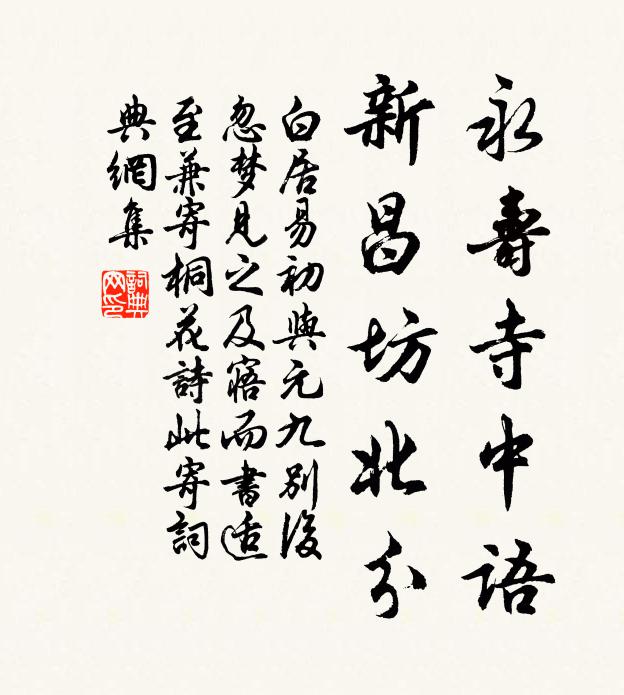 永壽寺中語
新昌坊北分
白居易初與元九別後
忽梦見之及寤而書適
至兼寄桐花詩此寄詞
典網集
詞典
网印